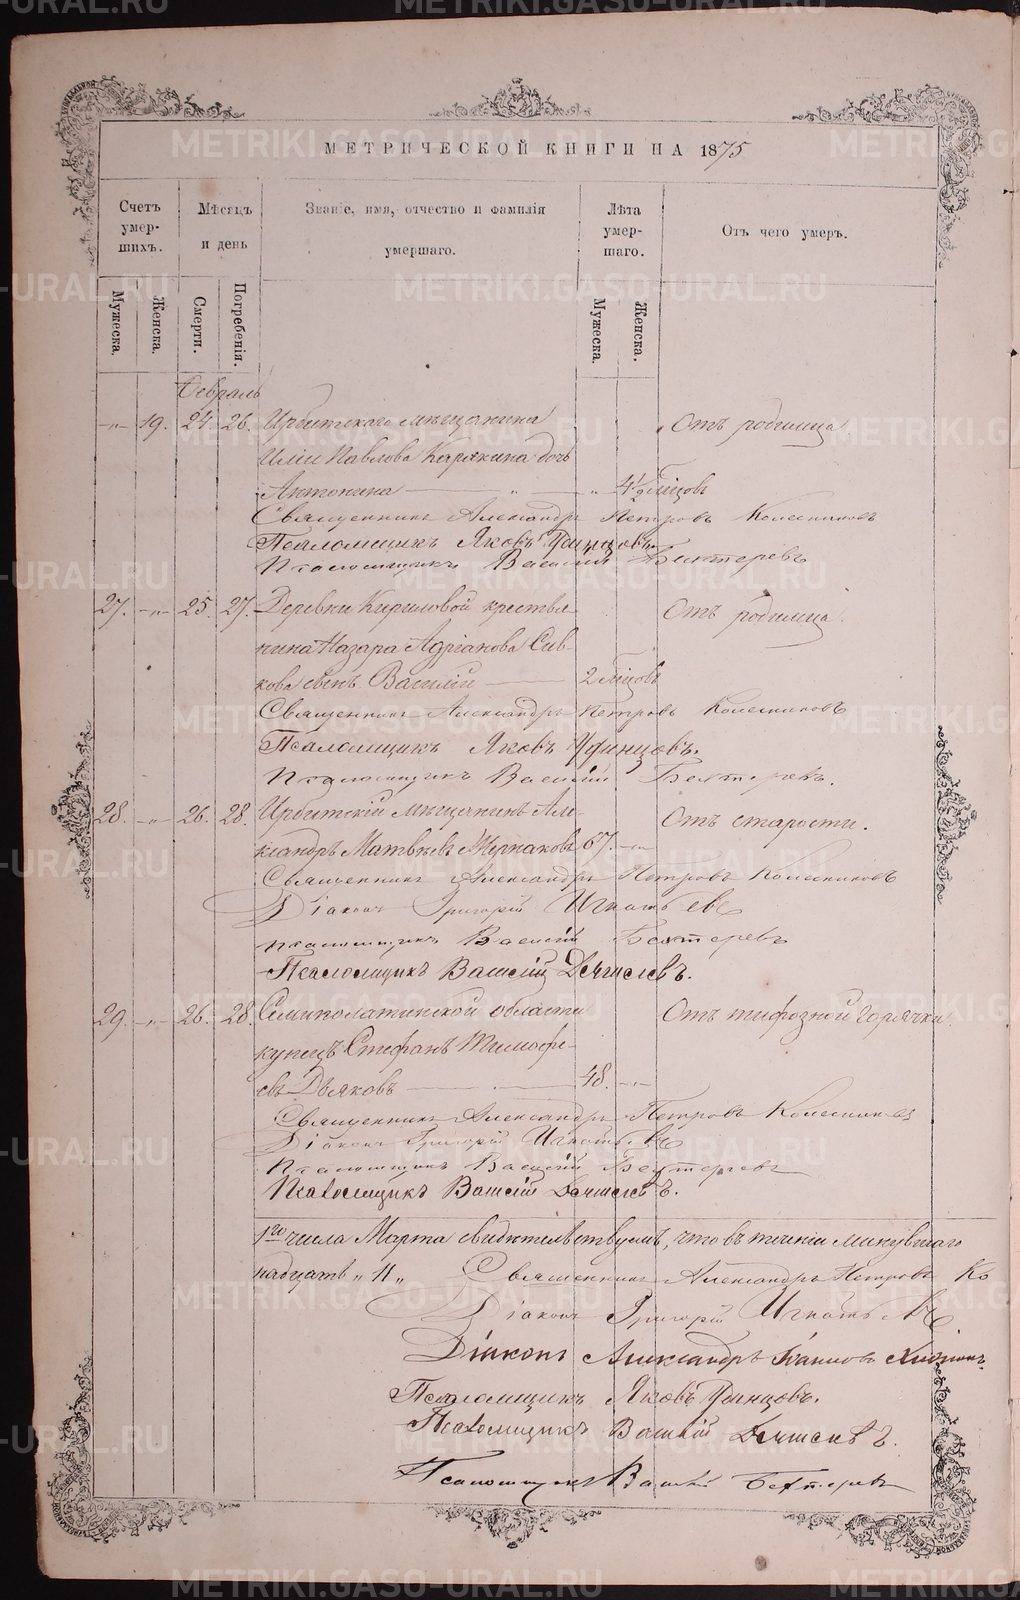 МЕТРИЧЕСКОЙ КНИГИ НА 1875
Счетъ умер-шихъ.
Мѣсяцъ и день
Званіе, имя, отчество и фамилія умершаго.
Лѣта умер-шаго.
Отъ чего умеръ.
Мужеска.
Женска.
Смерти.
Погребенія.
Мужеска.
Женска.
Февраль
-"- 19. 24 26. Ирбитскаго мѣщанина Отъ родимца
Иліи Павлова Карякина дочь
Антонина " " 4½ мѣсцовъ
Священникъ Александръ Петровъ Колесниковъ
Псаломщикъ Яковъ Уфинцовъ.
Псаломщикъ Василій Бехтеревъ
27. -"- 25. 27. Деревни Кириловой крестья Отъ родимца.
нина Назара Адріанова Сив-
кова сынъ Василій 2 мѣсцовъ
Священникъ Александръ Петровъ Колесниковъ
Псаломщикъ Яковъ Уфинцовъ.
Псаломщикъ Василій Бехтеревъ.
28. -"- 26. 28. Ирбитскій мѣщанинъ Але- Отъ старости.
ксандръ Матвѣевъ 67. -"-
Священникъ Александръ Петровъ Колесниковъ
Діаконъ Григорій Игнатьевъ
Псаломщикъ Василій Бехтеревъ
Псаломщикъ Василій
29. -"- 26. 28. Семипалатинской области Отъ тифозной горячки
купецъ Стефанъ Тимофе-
евъ Дьяковъ 48. -"-
Священникъ Александръ Петровъ Колесниковъ
Діаконъ Григорій Игнатьевъ
Псаломщикъ Василій Бехтеревъ
Псаломщикъ Василій
1го числа Марта свидѣтельствуемъ, что въ теченіи минувшаго
надцать "11" Священникъ Александръ Петровъ Ко
Діаконъ Григорій Игнатьевъ
Діаконъ Александръ Іоанновъ
Псаломщикъ Яковъ Уфинцовъ.
Псаломщикъ Василій
Псаломщикъ Василій Бехтеревъ
METRIKI.GASO-URAL.RU